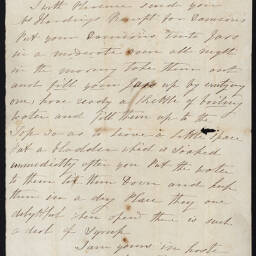 I with Pleasure send you
Mrs Harding's Receipt for Damsons
Put your Damsons into Jars
in a moderate oven all night
in the morning take them out
and fill your Jars up by emptying
one, have ready a Kettle of boiling
water and fill them up to the
Top so as to leave a little space
Put a bladder which is soaked
immediatly after you Put the water
to them tie them Down and keep
them in a dry Place they are
delightful when open'd there is such
a deal of Syrup
I am yours in haste